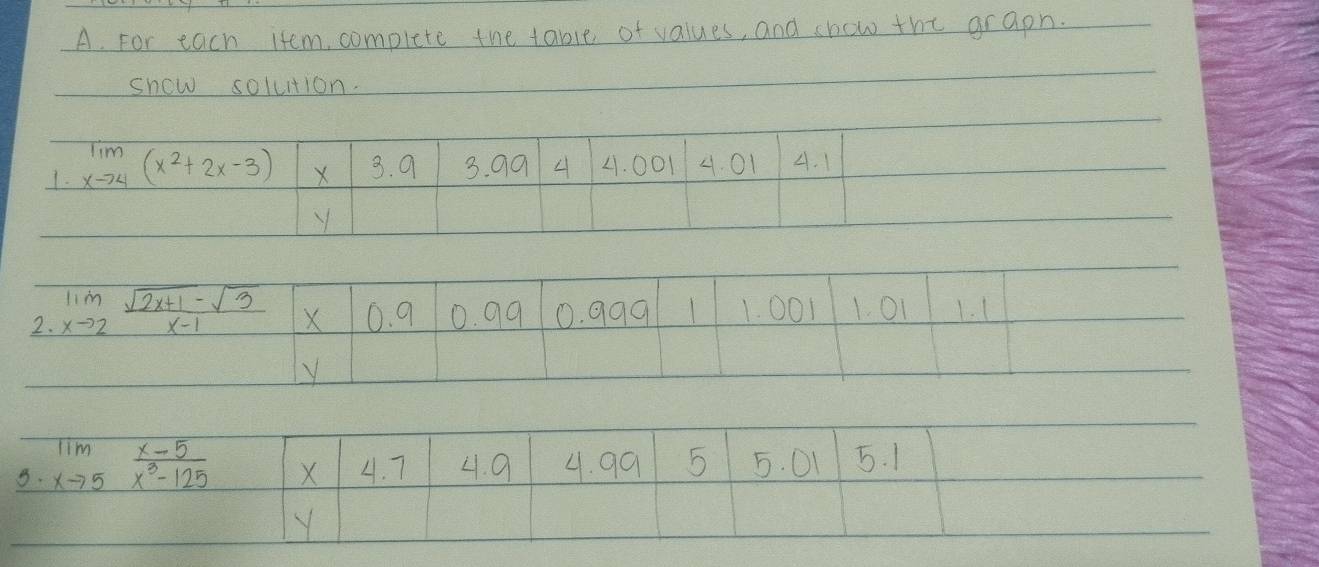 A. For each item, complete the table of values, and show the graph.
show solution.
1. lim x→4 (x²+2x-3) | x | 3.9 | 3.99 | 4 | 4.001 | 4.01 | 4.1
y
2. lim x→2 √2x+1 - √3 / x-1 | x | 0.9 | 0.99 | 0.999 | 1 | 1.001 | 1.01 | 1.1
y
3. lim x→5 x-5 / x³-125 | x | 4.7 | 4.9 | 4.99 | 5 | 5.01 | 5.1
y